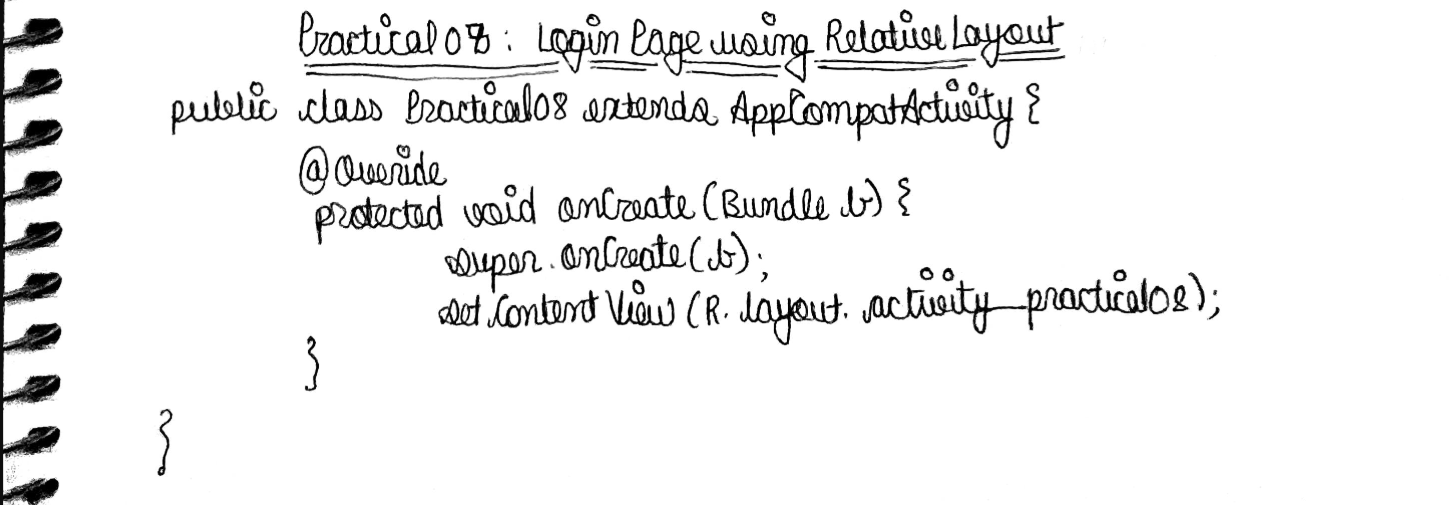 Practical 08 : Login Page using Relative Layout
public class Practical08 extends AppCompatActivity {
@Override
protected void onCreate (Bundle b) {
super.onCreate(b);
setContentView (R.layout.activity_practical08);
}
}